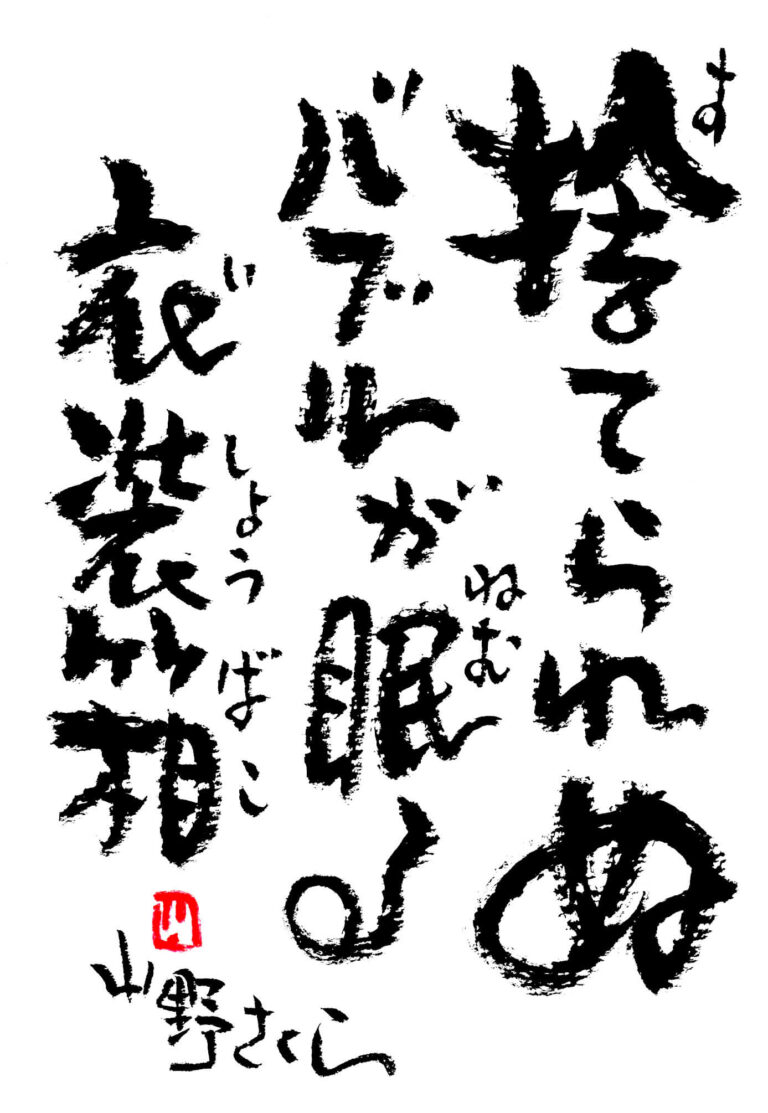 す
捨てられぬ
ねむ
バブルが眠る
いしょうばこ
衣装箱
山野さくら